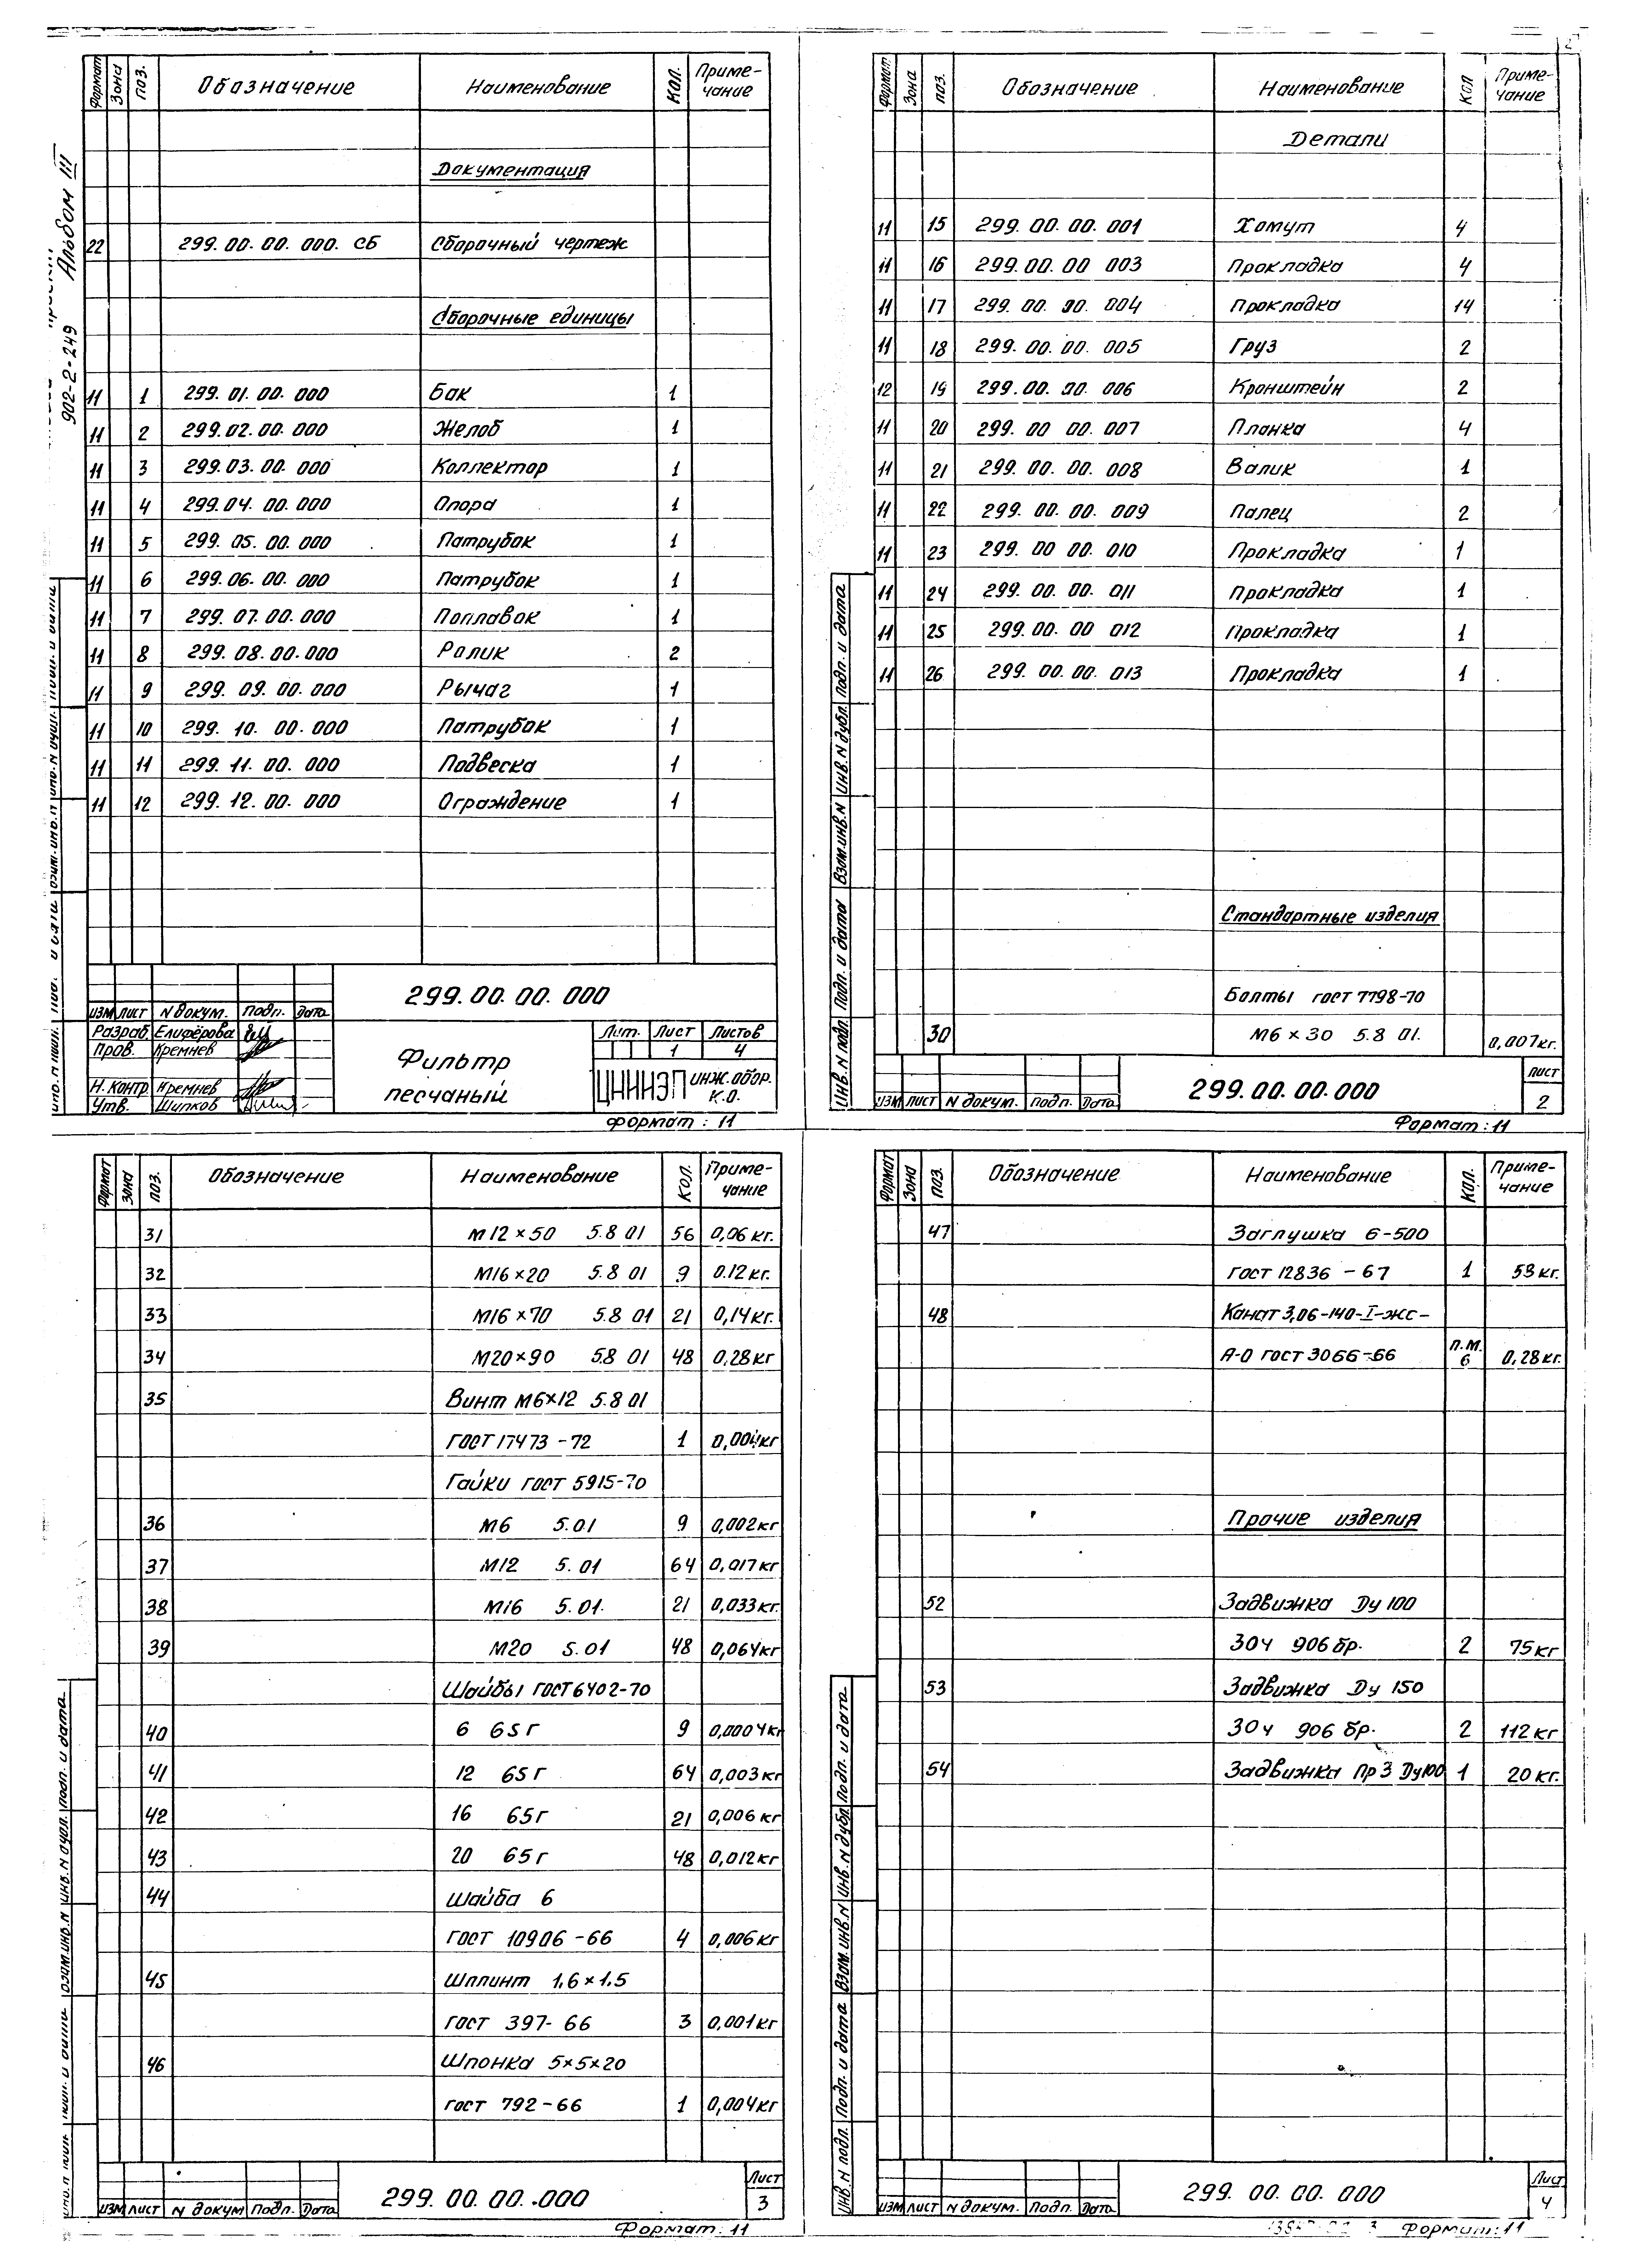 Альбом III
902-2-249
Формат Зона Поз. Обозначение Наименование Кол. Приме-чание
Документация
22 299.00.00.000. СБ Сборочный чертеж
Сборочные единицы
11 1 299.01.00.000 Бак 1
11 2 299.02.00.000 Желоб 1
11 3 299.03.00.000 Коллектор 1
11 4 299.04.00.000 Опора 1
11 5 299.05.00.000 Патрубок 1
11 6 299.06.00.000 Патрубок 1
11 7 299.07.00.000 Поплавок 1
11 8 299.08.00.000 Ролик 2
11 9 299.09.00.000 Рычаг 1
11 10 299.10.00.000 Патрубок 1
11 11 299.11.00.000 Подвеска 1
11 12 299.12.00.000 Ограждение 1
299.00.00.000
Изм Лист N докум. Подп. Дата
Разраб. Елифёрова
Пров. Кремнев
Н. Контр Кремнев
Утв. Шипков
Фильтр
песчаный
Лит. Лист Листов
1 4
ЦНИИЭП инж. обор.
К.О.
Формат: 11
2
Формат Зона Поз. Обозначение Наименование Кол Приме-чание
Детали
11 15 299.00.00.001 Хомут 4
11 16 299.00.00 003 Прокладка 4
11 17 299.00.00.004 Прокладка 14
11 18 299.00.00.005 Груз 2
12 19 299.00.00.006 Кронштейн 2
11 20 299.00 00.007 Планка 4
11 21 299.00.00.008 Валик 1
11 22 299.00.00.009 Палец 2
11 23 299.00 00.010 Прокладка 1
11 24 299.00.00.011 Прокладка 1
11 25 299.00.00 012 Прокладка 1
11 26 299.00.00.013 Прокладка 1
Стандартные изделия
Болты ГОСТ 7798-70
30 М6×30 5.8 01. 0,007кг.
Инв. N подл. Подп. и дата Взам.инв.N Инв.N дубл. Подп. и дата
Изм Лист N докум. Подп. Дата
299.00.00.000
Лист
2
Формат: 11
Формат Зона Поз. Обозначение Наименование Кол. Приме-чание
31 М12×50 5.8 01 56 0,06 кг.
32 М16×20 5.8 01 9 0.12 кг.
33 М16×70 5.8 01 21 0,14 кг.
34 М20×90 5.8 01 48 0,28 кг
35 Винт М6×12 5.8 01
ГОСТ 17473-72 1 0,004кг
Гайки ГОСТ 5915-70
36 М6 5.01 9 0,002кг
37 М12 5.01 64 0,017кг
38 М16 5.01. 21 0,033кг.
39 М20 5.01 48 0,064кг
Шайбы ГОСТ 6402-70
40 6 65г 9 0,0004кг
41 12 65г 64 0,003кг
42 16 65г 21 0,006 кг
43 20 65г 48 0,012кг
44 Шайба 6
ГОСТ 10906-66 4 0,006кг
45 Шплинт 1,6×1,5
ГОСТ 397-66 3 0,001кг
46 Шпонка 5×5×20
ГОСТ 792-66 1 0,004кг
Изм Лист N докум Подп. Дата
299.00.00.000
Лист
3
Формат: 11
Формат Зона Поз. Обозначение Наименование Кол. Приме-чание
47 Заглушка 6-500
ГОСТ 12836-67 1 53кг.
48 Канат 3,06-140-I-жс-
А-О ГОСТ 3066-66 п.м. 6 0,28кг.
Прочие изделия
52 Задвижка Ду 100
30ч 906бр. 2 75кг
53 Задвижка Ду 150
30ч 906 бр. 2 112кг
54 Задвижка Пр3 Ду100 1 20кг.
Инв. N подл. Подп. и дата Взам.инв.N Инв.N дубл. Подп. и дата
Изм Лист N докум. Подп. Дата
299.00.00.000
Лист
4
3 Формат: 11